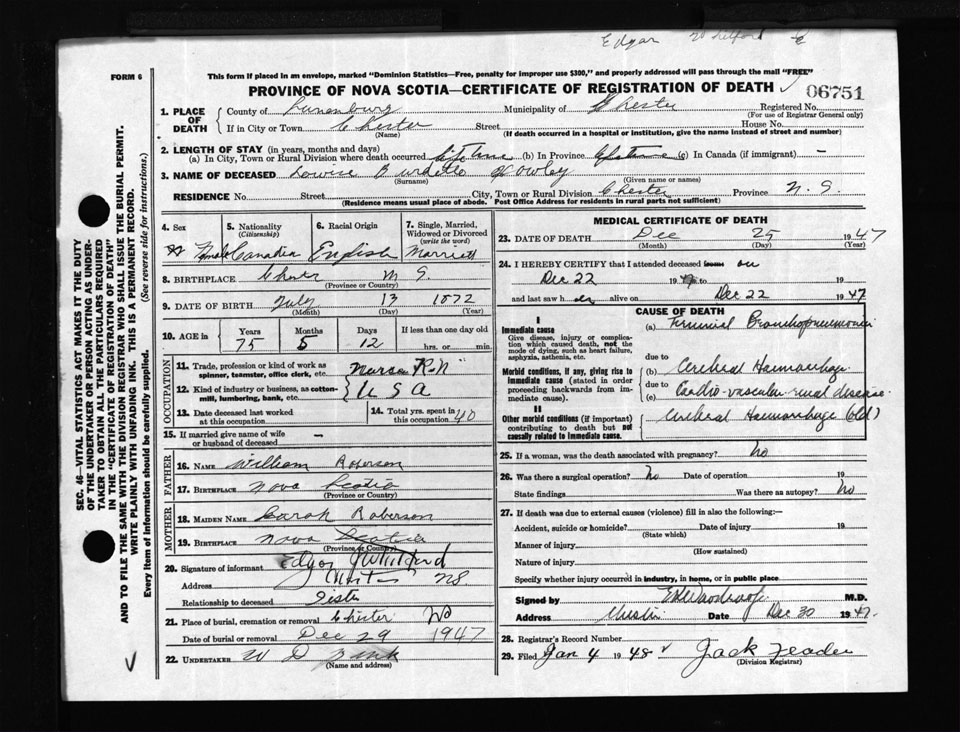 Edgar Whitford
FORM 6
This form if placed in an envelope, marked "Dominion Statistics—Free, penalty for improper use $300," and properly addressed will pass through the mail "FREE"
PROVINCE OF NOVA SCOTIA—CERTIFICATE OF REGISTRATION OF DEATH
06751
1. PLACE OF DEATH
County of Lunenburg Municipality of Chester Registered No.
(For use of Registrar General only)
If in City or Town Chester Street House No.
(Name) (If death occurred in a hospital or institution, give the name instead of street and number)
2. LENGTH OF STAY (in years, months and days)
(a) In City, Town or Rural Division where death occurred lifetime (b) In Province lifetime (c) In Canada (if immigrant) —
3. NAME OF DECEASED Louise Burdette Howley
(Surname) (Given name or names)
RESIDENCE No. Street City, Town or Rural Division Chester Province N. S.
(Residence means usual place of abode. Post Office Address for residents in rural parts not sufficient)
4. Sex 5. Nationality (Citizenship) 6. Racial Origin 7. Single, Married, Widowed or Divorced (write the word)
Female Canadian English Married
8. BIRTHPLACE Chester N S.
(Province or Country)
9. DATE OF BIRTH July 13 1872
(Month) (Day) (Year)
10. AGE in Years Months Days If less than one day old
75 5 12 hrs. or min.
OCCUPATION
11. Trade, profession or kind of work as spinner, teamster, office clerk, etc. Nurse R.N
12. Kind of industry or business, as cotton-mill, lumbering, bank, etc. U S A
13. Date deceased last worked at this occupation 14. Total yrs. spent in this occupation 40
15. If married give name of wife or husband of deceased —
FATHER
16. NAME William Roberson
17. BIRTHPLACE Nova Scotia
(Province or Country)
MOTHER
18. MAIDEN NAME Sarah Roberson
19. BIRTHPLACE Nova Scotia
(Province or Country)
20. Signature of informant Edgar Whitford
Address Chester NS
Relationship to deceased Sister
21. Place of burial, cremation or removal Chester NS
Date of burial or removal Dec 29 1947
22. UNDERTAKER W D
(Name and address)
MEDICAL CERTIFICATE OF DEATH
23. DATE OF DEATH Dec 25 1947
(Month) (Day) (Year)
24. I HEREBY CERTIFY that I attended deceased from on
Dec 22 19 to 19
and last saw her alive on Dec 22 1947
CAUSE OF DEATH
I
Immediate cause
Give disease, injury or complication which caused death, not the mode of dying, such as heart failure, asphyxia, asthenia, etc.
(a) Terminal Bronchopneumonia
due to
Morbid conditions, if any, giving rise to immediate cause (stated in order proceeding backwards from immediate cause).
(b) Cerebral Haemorrhage
due to
(c) Cardio-vascular-renal disease
II
Other morbid conditions (if important) contributing to death but not causally related to immediate cause.
Cerebral Haemorrhage (old)
25. If a woman, was the death associated with pregnancy? No
26. Was there a surgical operation? No Date of operation 19
State findings Was there an autopsy? No
27. If death was due to external causes (violence) fill in also the following:—
Accident, suicide or homicide? Date of injury 19
(State which)
Manner of injury
(How sustained)
Nature of injury
Specify whether injury occurred in industry, in home, or in public place
Signed by M.D.
Address Chester Date Dec 30 1947.
28. Registrar's Record Number
29. Filed Jan 4 1948 Jack Feader
(Division Registrar)
SEC. 46—VITAL STATISTICS ACT MAKES IT THE DUTY
OF THE UNDERTAKER OR PERSON ACTING AS UNDER-
TAKER TO OBTAIN ALL THE PARTICULARS REQUIRED
IN THE "CERTIFICATE OF REGISTRATION OF DEATH"
AND TO FILE THE SAME WITH THE DIVISION REGISTRAR WHO SHALL ISSUE THE BURIAL PERMIT.
WRITE PLAINLY WITH UNFADING INK. THIS IS A PERMANENT RECORD.
Every item of information should be carefully supplied. (See reverse side for instructions.)